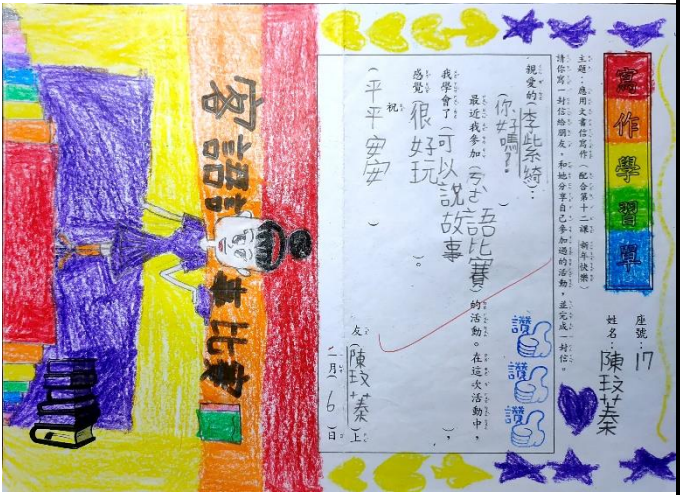 寫作學習單
座號：17
姓名：陳玟蓁
主題：應用文書信寫作（配合第十二課 新年快樂）
請你寫一封信給朋友，和她分享自己參加過的活動，並完成一封信。
親愛的（李紫綺）：
（你好嗎？
最近我參加（語比賽）的活動。在這次活動中，
我學會了（可以說故事），
感覺（很好玩）。
祝
（平平安安）
友（陳玟蓁）上
一月（6）日
讚
讚
讚
客語事比賽